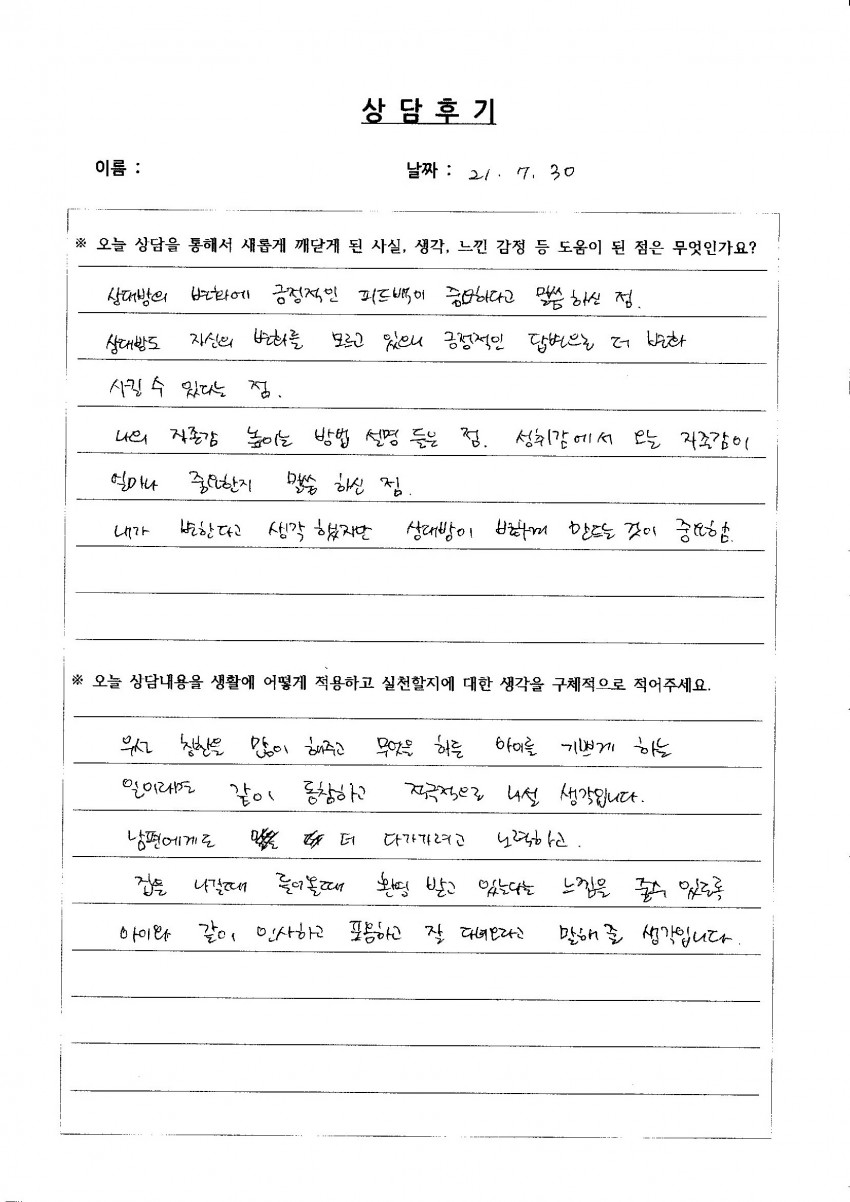 상 담 후 기
이름 : 날짜 : 21. 7. 30
※ 오늘 상담을 통해서 새롭게 깨닫게 된 사실, 생각, 느낀 감정 등 도움이 된 점은 무엇인가요?
상대방의 변화에 긍정적인 피드백이 중요하다고 말씀 하신 점.
상대방도 자신의 변화를 모르고 있으니 긍정적인 답변으로 더 변화
시킬 수 있다는 점.
나의 자존감 높이는 방법 설명 들은 점. 성취감에서 오는 자존감이
얼마나 중요한지 말씀 하신 점.
내가 변한다고 생각 했지만 상대방이 변하게 만드는 것이 중요함.
※ 오늘 상담내용을 생활에 어떻게 적용하고 실천할지에 대한 생각을 구체적으로 적어주세요.
우선 칭찬을 많이 해주고 무엇을 하든 아이를 기쁘게 하는
일이라면 같이 동참하고 적극적으로 나설 생각입니다.
남편에게도 더 다가가려고 노력하고.
집을 나갈때 들어올때 환영 받고 있는다는 느낌을 줄수 있도록
아이와 같이 인사하고 포옹하고 잘 다녀오라고 말해 줄 생각입니다.